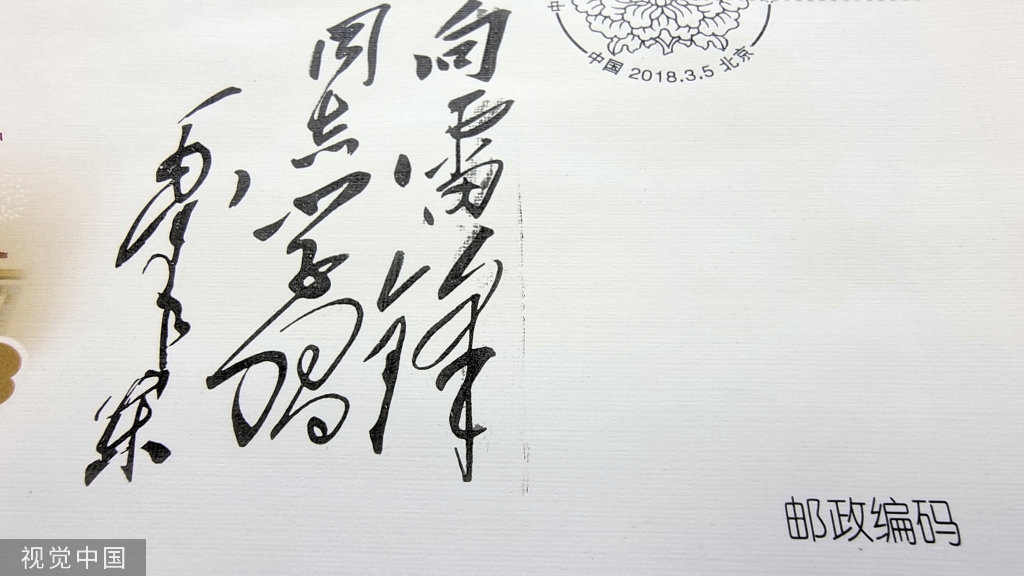 向雷锋
同志学习
毛泽东
中国 2018.3.5 北京
邮政编码
视觉中国